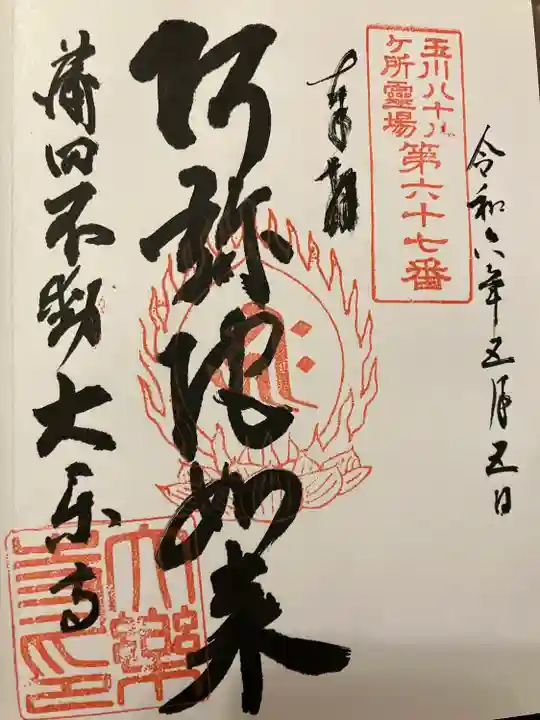 玉川八十八
ケ所靈場 第六十七番
令和六年五月五日
奉拝
阿弥陀如来
蒲田不動 大楽寺
大樂
寺印